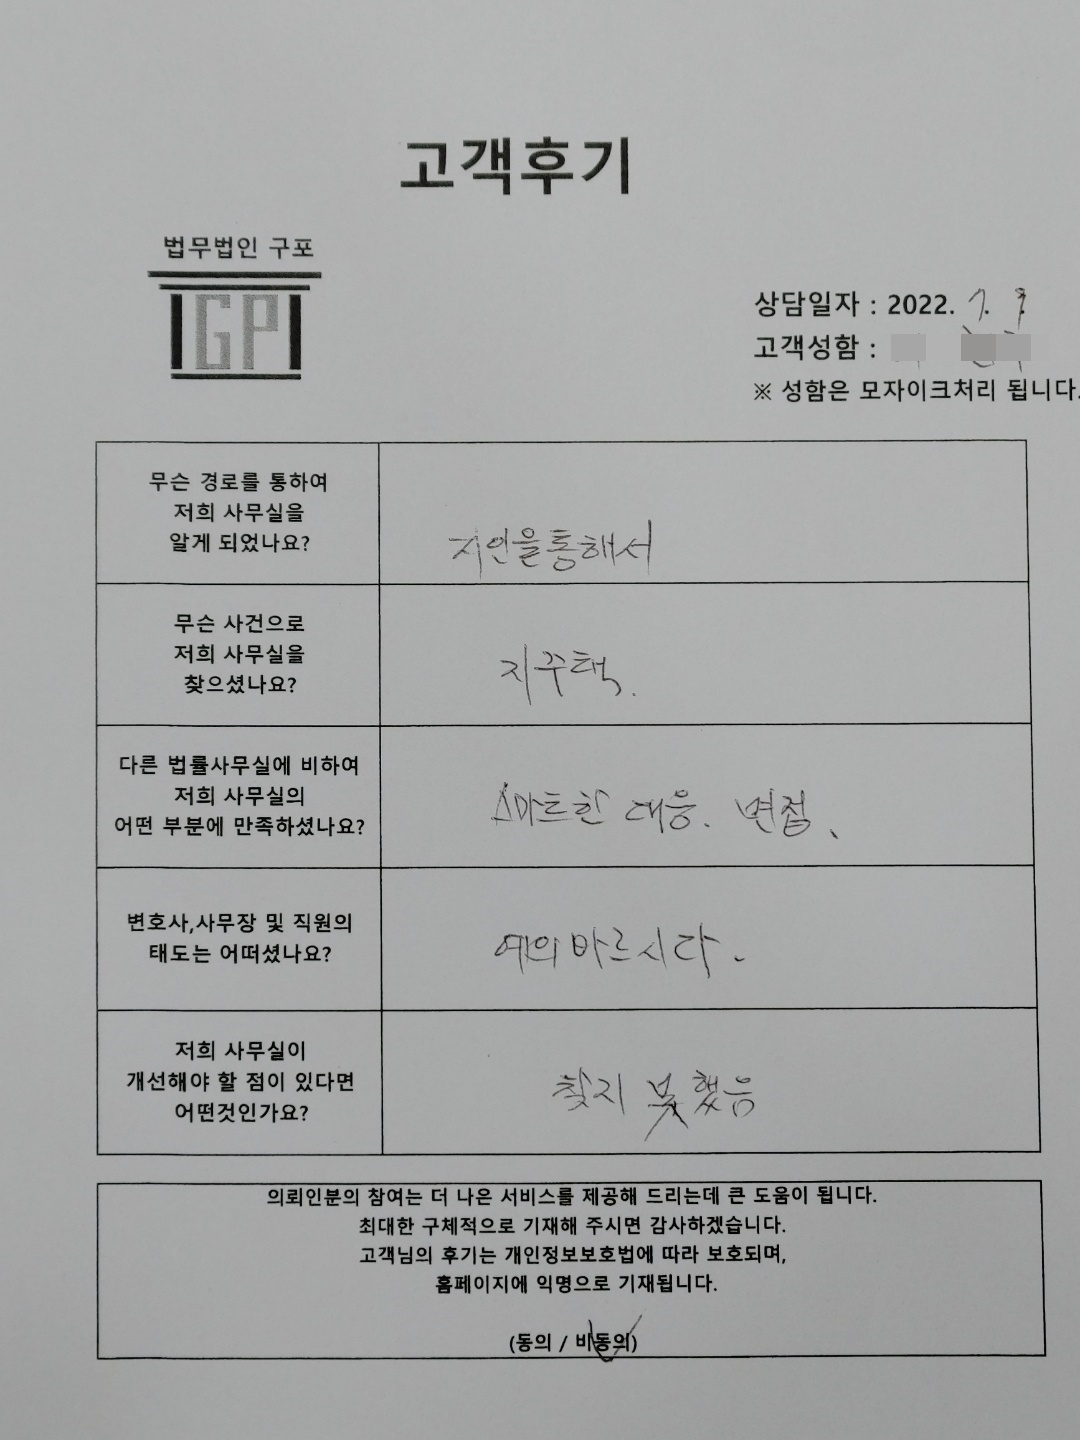 고객후기
법무법인 구포
GP
상담일자 : 2022. 7.
고객성함 :
※ 성함은 모자이크처리 됩니다.
무슨 경로를 통하여
저희 사무실을
알게 되었나요?
지인을통해서
무슨 사건으로
저희 사무실을
찾으셨나요?
지주택.
다른 법률사무실에 비하여
저희 사무실의
어떤 부분에 만족하셨나요?
스마트한 대응. 면접.
변호사,사무장 및 직원의
태도는 어떠셨나요?
예의바르시다.
저희 사무실이
개선해야 할 점이 있다면
어떤것인가요?
찾지 못했음
의뢰인분의 참여는 더 나은 서비스를 제공해 드리는데 큰 도움이 됩니다.
최대한 구체적으로 기재해 주시면 감사하겠습니다.
고객님의 후기는 개인정보보호법에 따라 보호되며,
홈페이지에 익명으로 기재됩니다.
(동의 / 비동의)